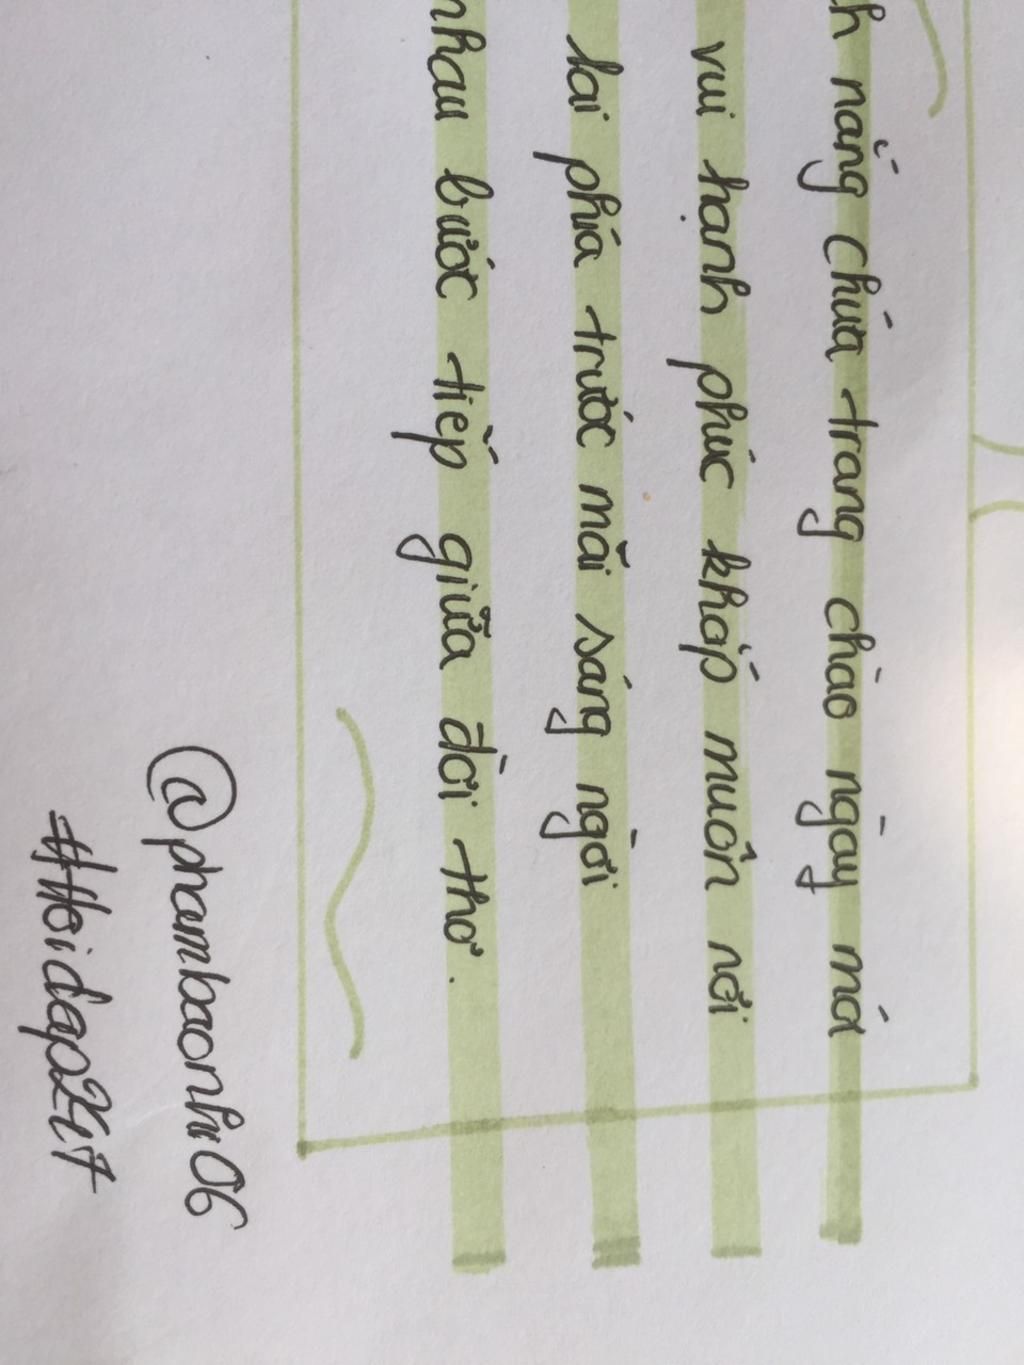 h nắng chứa trang chào ngày mới
vui hạnh phúc khắp muôn nơi
lai phía trước mãi sáng ngời
nhau bước tiếp giữa đời thơ.
@phambaonhi06
#Hoidap247